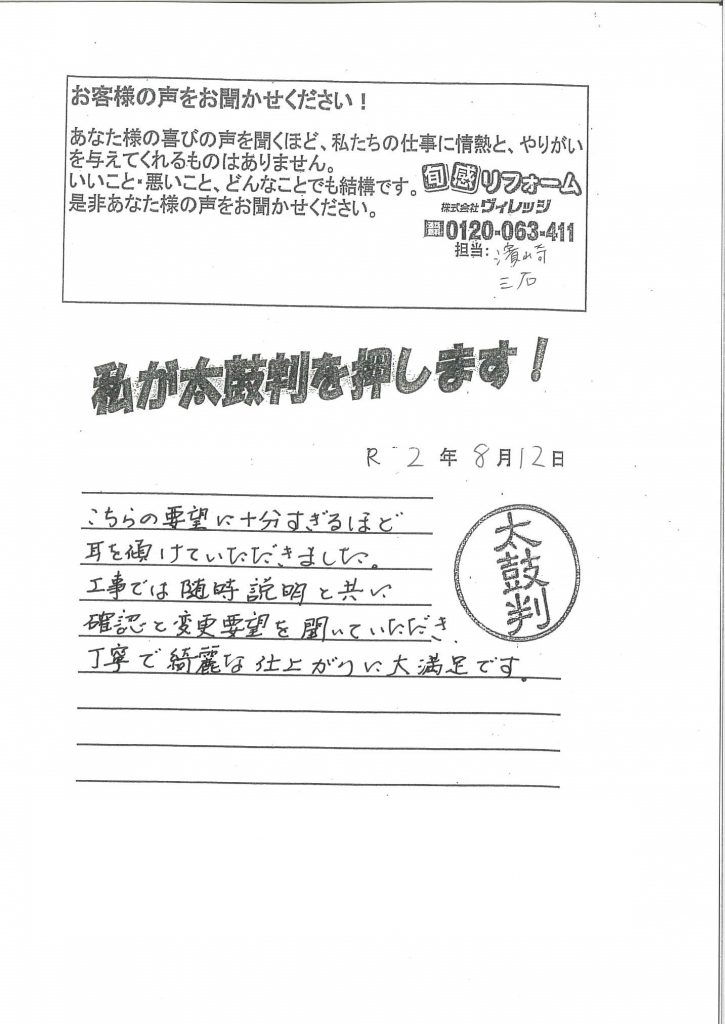 お客様の声をお聞かせください！
あなた様の喜びの声を聞くほど、私たちの仕事に情熱と、やりがい
を与えてくれるものはありません。
いいこと・悪いこと、どんなことでも結構です。
是非あなた様の声をお聞かせください。
旬感リフォーム
株式会社 ヴィレッジ
0120-063-411
担当：濱崎
三石
私が太鼓判を押します！
R 2 年 8 月 12 日
こちらの要望に十分すぎるほど
耳を傾けていただきました。
工事では随時説明と共に
確認と変更要望を聞いていただき、
丁寧で綺麗な仕上がりに大満足です。
太鼓判